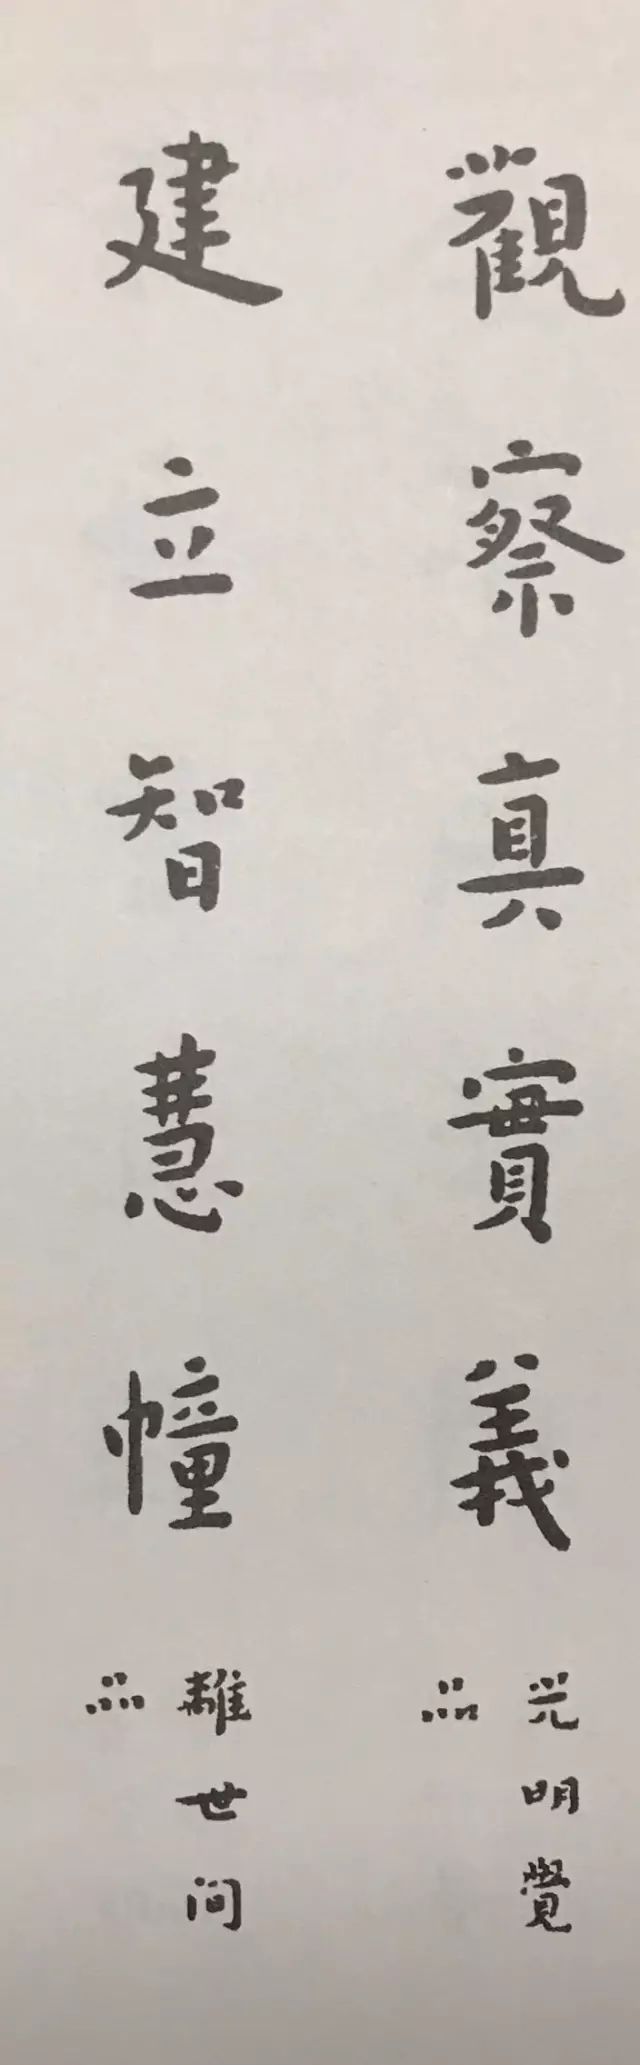 觀察真實義
光明覺
品
建立智慧幢
離世间
品